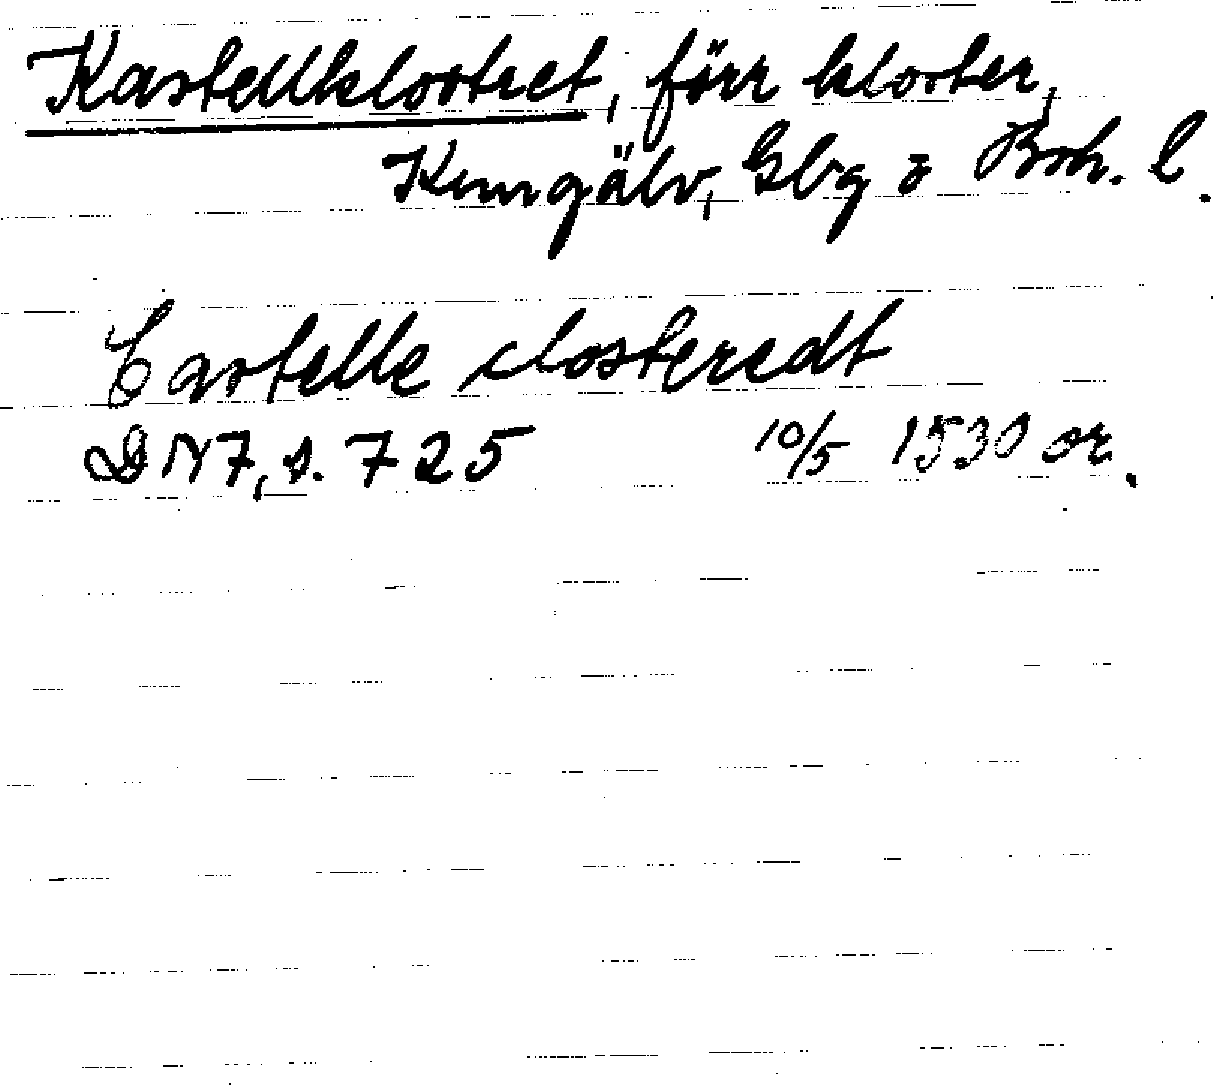 Kastellklostret, förr kloster,
Kungälv, Gbg o Boh. l.
Castelle closteredt
DN 7, s. 725 10/5 1530 or.